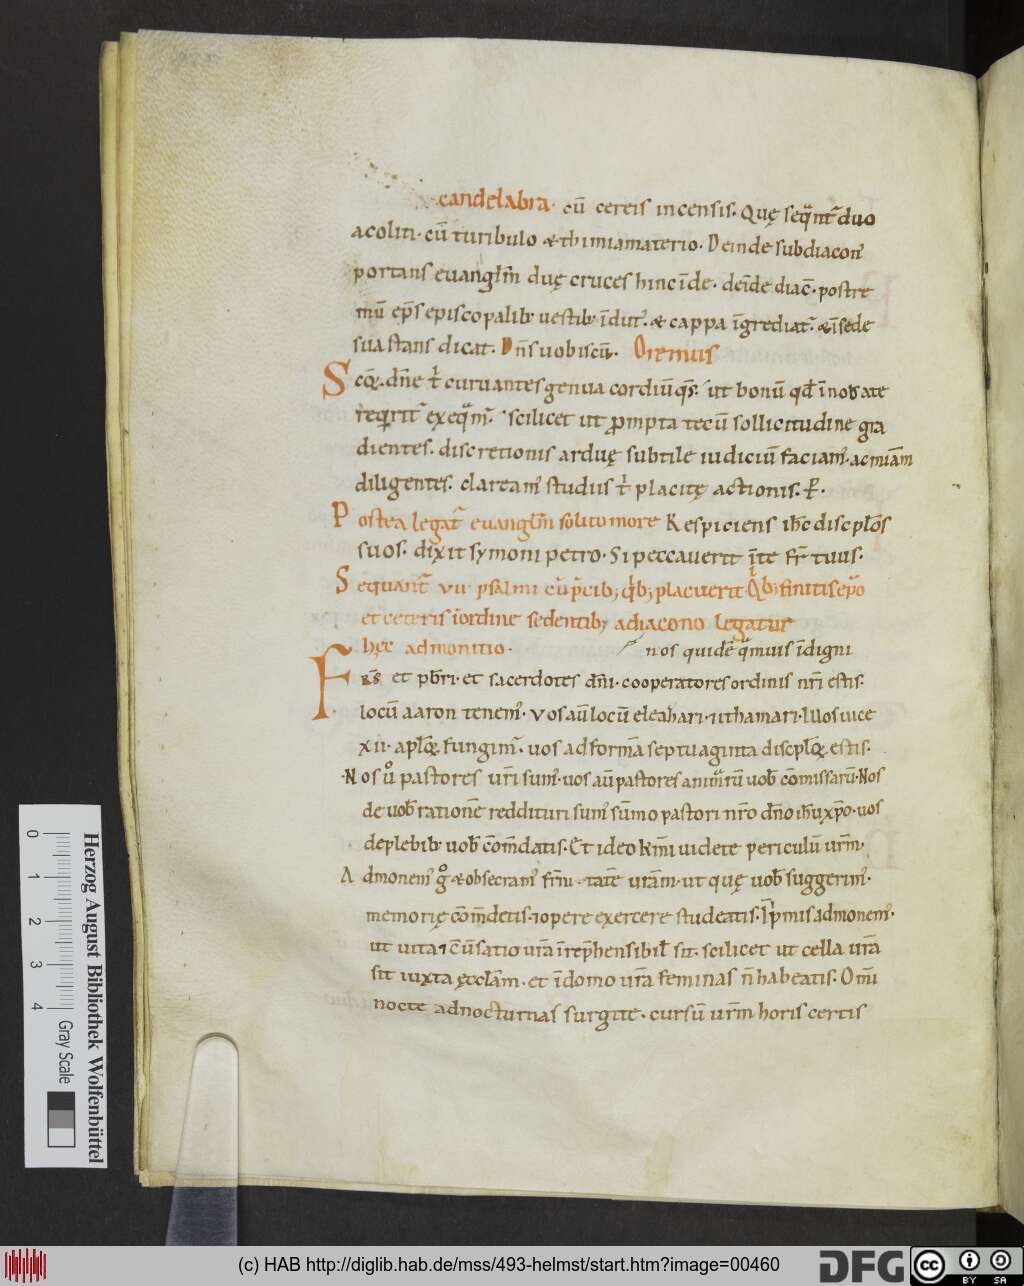 candelabra. cū cereis incensis. Quę seqnt͛ duo
acoliti. cū turibulo & thimiamaterio. Deinde subdiacon᾽
portans euangl̅m duę cruces hinc īde. deīde diac̅. postre
mū ep̅s episcopalib; uestib; īdut᾽. & cappa īgrediat͛. & ī sede
sua stans dicat. D n̅s uobiscū. Oremus
Scq̅. dn̅e t̅ curuantes genua cordiū qs̅. ut bonū qd̅ in nob̅ a te
reqrit͛ exeqm᾽. scilicet ut prompta tecū sollicitudine gra
dientes. discretionis arduę subtile iudiciū faciam᾽. ac miām
diligentes. claream᾽ studiis t̅ placitę actionis. P̅.
Postea legat͛ euangl̅m solito more Respiciens ih̅c discpl̅os
suos. dixit symoni petro. Si peccauerit ī te fr̅ tuus.
Sequant͛ vii psalmi cū p̅cib; qb; placuerit Qb; finitis ep̅o
et ceteris ī ordine sedentib; a diacono legatur
hęc admonitio. nos quidē qmuis īdigni
Frs̅ et pb̅ri. et sacerdotes dn̅i. cooperatores ordinis nr̅i estis.
locū aaron tenem᾽. vos aū locū eleazari. ⁊ ithamari. Nos uice
xii. apl̅oꝝ fungim͛. uos ad formā septuaginta discpl̅oꝝ estis.
Nos u͛o pastores ur̅i sum᾽. uos aū pastores animarū uob̅ cōmissarū. Nos
de uob̅ rationē reddituri sum᾽ sūmo pastori nr̅o dn̅o ih̅u xp̅o. uos
de plebib; uob̅ cōm̅datis. Et ideo k̅mi uidete periculū ur̅m.
Admonem᾽ gᵒ & obsecram᾽ fr̅niͭatē ur̅am. ut quę uob̅ suggerim᾽.
memorię cōm̅detis. ⁊ opere exercere studeatis. Ip̅mis admonem᾽.
ut uita ⁊ c̅ūsatio ur̅a īrep̅hensibil̅ sit. scilicet ut cella ur̅a
sit iuxta ęccl̅am. et ī domo ur̅a feminas n̅ habeatis. Om̅i
nocte ad nocturnas surgite. cursū ur̅m horis certis
Herzog August Bibliothek Wolfenbüttel
0 1 2 3 4 Gray Scale
(c) HAB http://diglib.hab.de/mss/493-helmst/start.htm?image=00460
DFG
cc BY SA